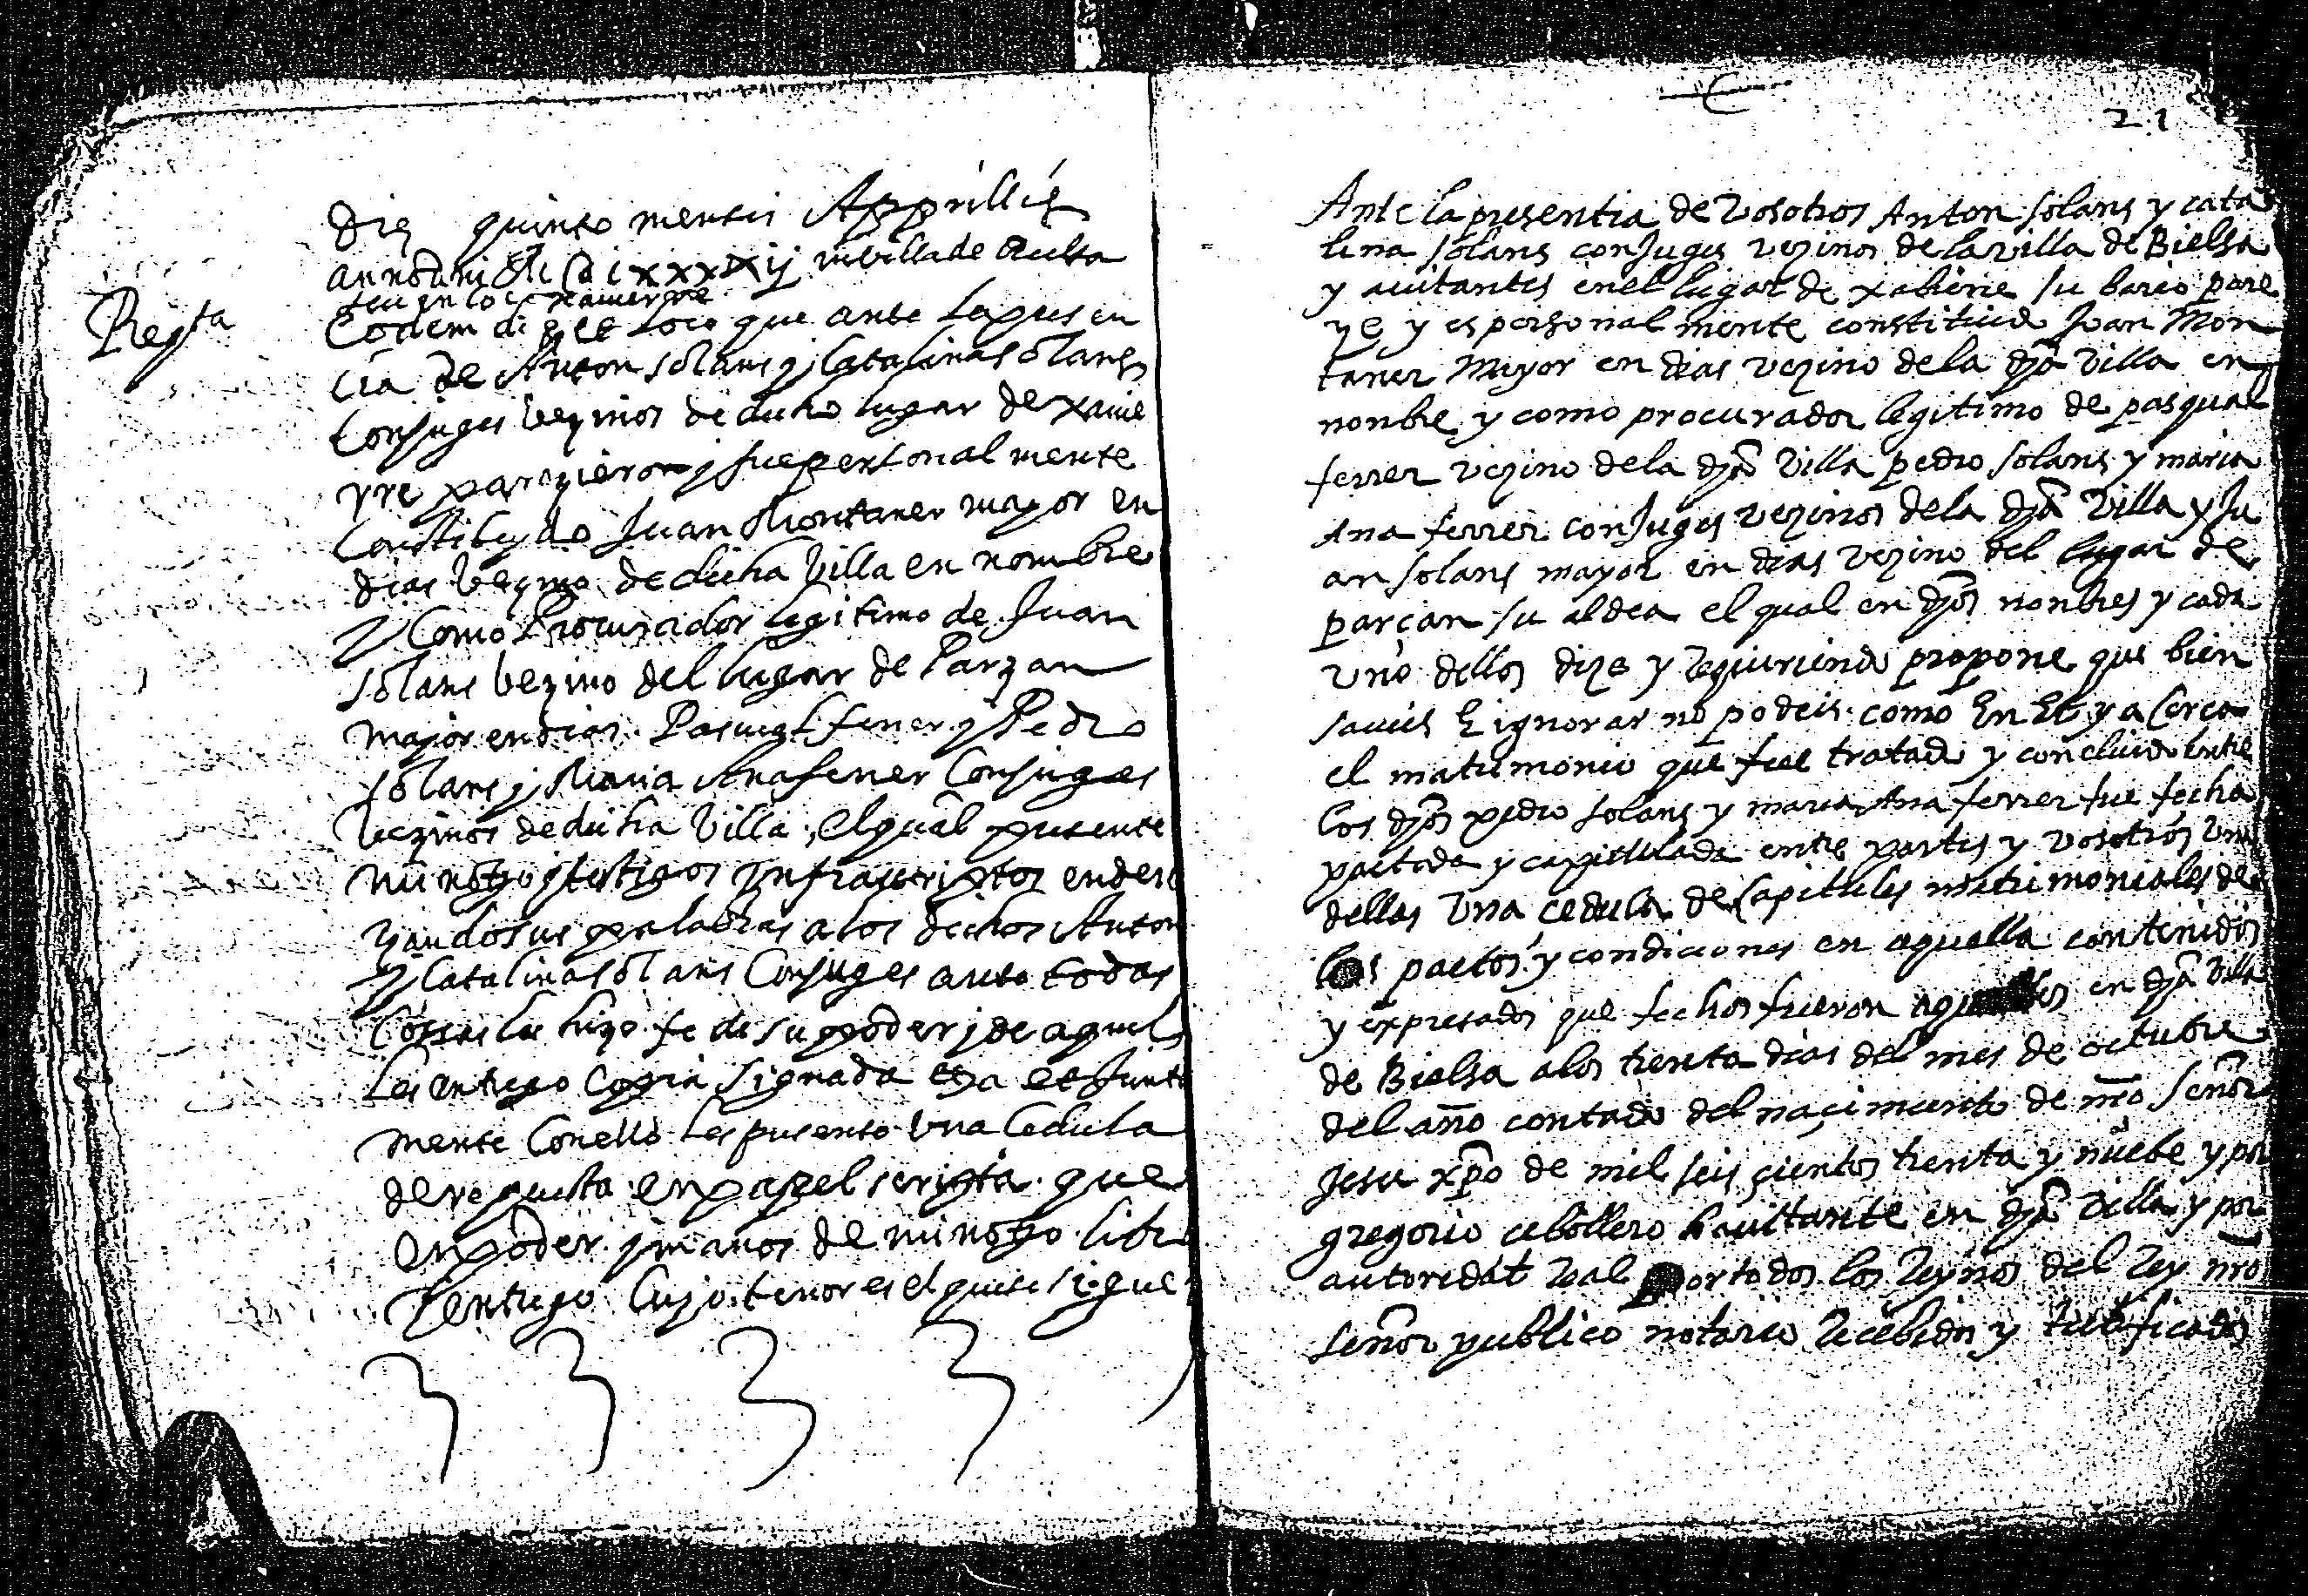 Die quinto mensis Apprillis
anno dni in villa de Bielsa
seu in loco xauierre
Reqta
Eodem die et Loco que ante la presen
cia de Anton solans y Catalina solans
Conjuges vezinos de dicho lugar de xauie
rre parezieron y fue personalmente
Constituydo Juan Montaner mayor en
dias vezino de dicha villa en nombre
y Como Procurador legitimo de Juan
solans vezino del lugar de Parzan
mayor en dias Pasqual ferrer y Pedro
solans y Maria Ana ferrer Conjuges
vezinos de dicha villa, el qual presente
mi notro y testigos infrascriptos endere
zando sus palabras a los dichos Anton
y Catalina solans Conjuges ante todas
Cossas les hizo fe de su poder y de aquel
les entrego Copia signada etza et Junta
mente Con ello les presento una Cedula
de requesta en papel scripta que
en poder y manos de mi notro libro
y entrego Cuyo tenor es el que se sigue
21
Ante la presentia de Vosotros Anton solans y cata
lina solans conjuges vezinos de la villa de Bielsa
y auitantes en el lugar de xabierre su bario pare
ze y es personalmente constituido Joan Mon
taner Mayor en dias vezino de la dja villa en
nonbre y como procurador legitimo de pasqual
ferrer vezino de la dja villa pedro solans y maria
Ana ferrer conjuges vezinos de la dja villa y Ju
an solans mayor en dias vezino del lugar de
parçan su aldea el qual en djos nonbres y cada
uno dellos dize y requiriendo propone que bien
saueis E ignorar no podeis como En Et y a Cerca
el matrimonio que fue tratado y concluido entre
los djos pedro solans y maria Ana ferrer fue fecha
pactada y capitulada entre partes y vosotros una
dellas una cedula de Capitulos matrimoniales de
los pactos y condiciones en aquella contenidos
y expresados que fechos fueron en dja villa
de Bielsa a los trenta dias del mes de octubre
del año contado del naçimiento de nro señor
Jesu xpo de mil seis çientos trenta y nuebe y por
gregorio cebollero hauitante en dja villa y por
autoridat Real por todos los Reynos del Rey nro
señor publico notario Recebidos y testificados